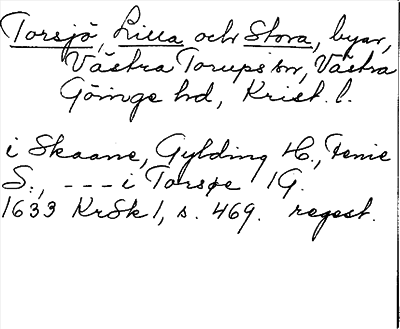 Torsjö, Lilla och Stora, byar,
Västra Torups sn, Västra
Göinge hd, Krist. l.
i Skaane, Gylding H., Femie
S., --- i Torsøe 1G.
1633 KrSk 1, s. 469. regest.